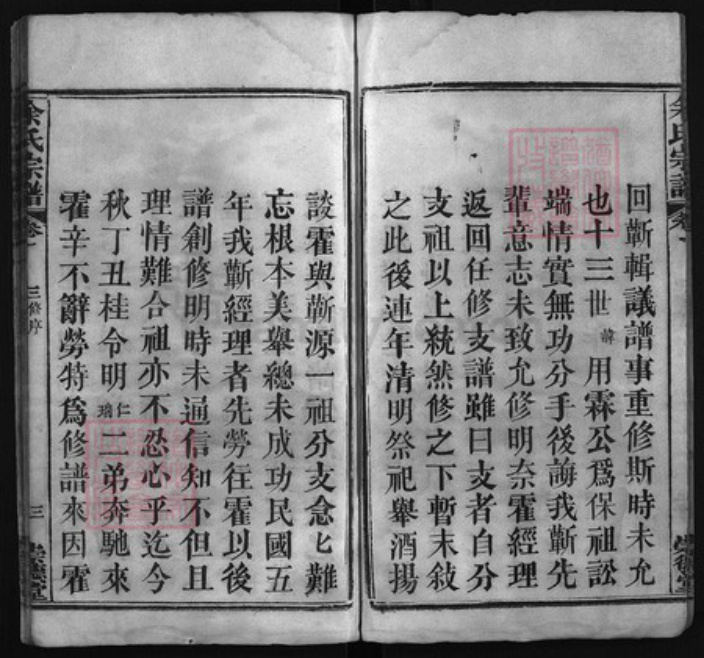 回靳輯議譜事重修斯時未允
也十三世諱用霖公爲保祖訟
端情實無功分手後誨我靳先
輩意志未致允修明奈霍經理
返回任修支譜雖曰支者自分
支祖以上統然修之下暫末敍
之此後連年清明祭祀舉酒揚
談霍與靳源一祖分支念匕難
忘根本美舉總未成功民國五
年我靳經理者先勞往霍以後
譜創修明時未通信知不但且
理情難合祖亦不忍心乎迄今
秋丁丑桂令明仁瑞二弟奔馳來
霍辛不辭勞特爲修譜來因霍
余氏宗譜
卷一
三修序
三